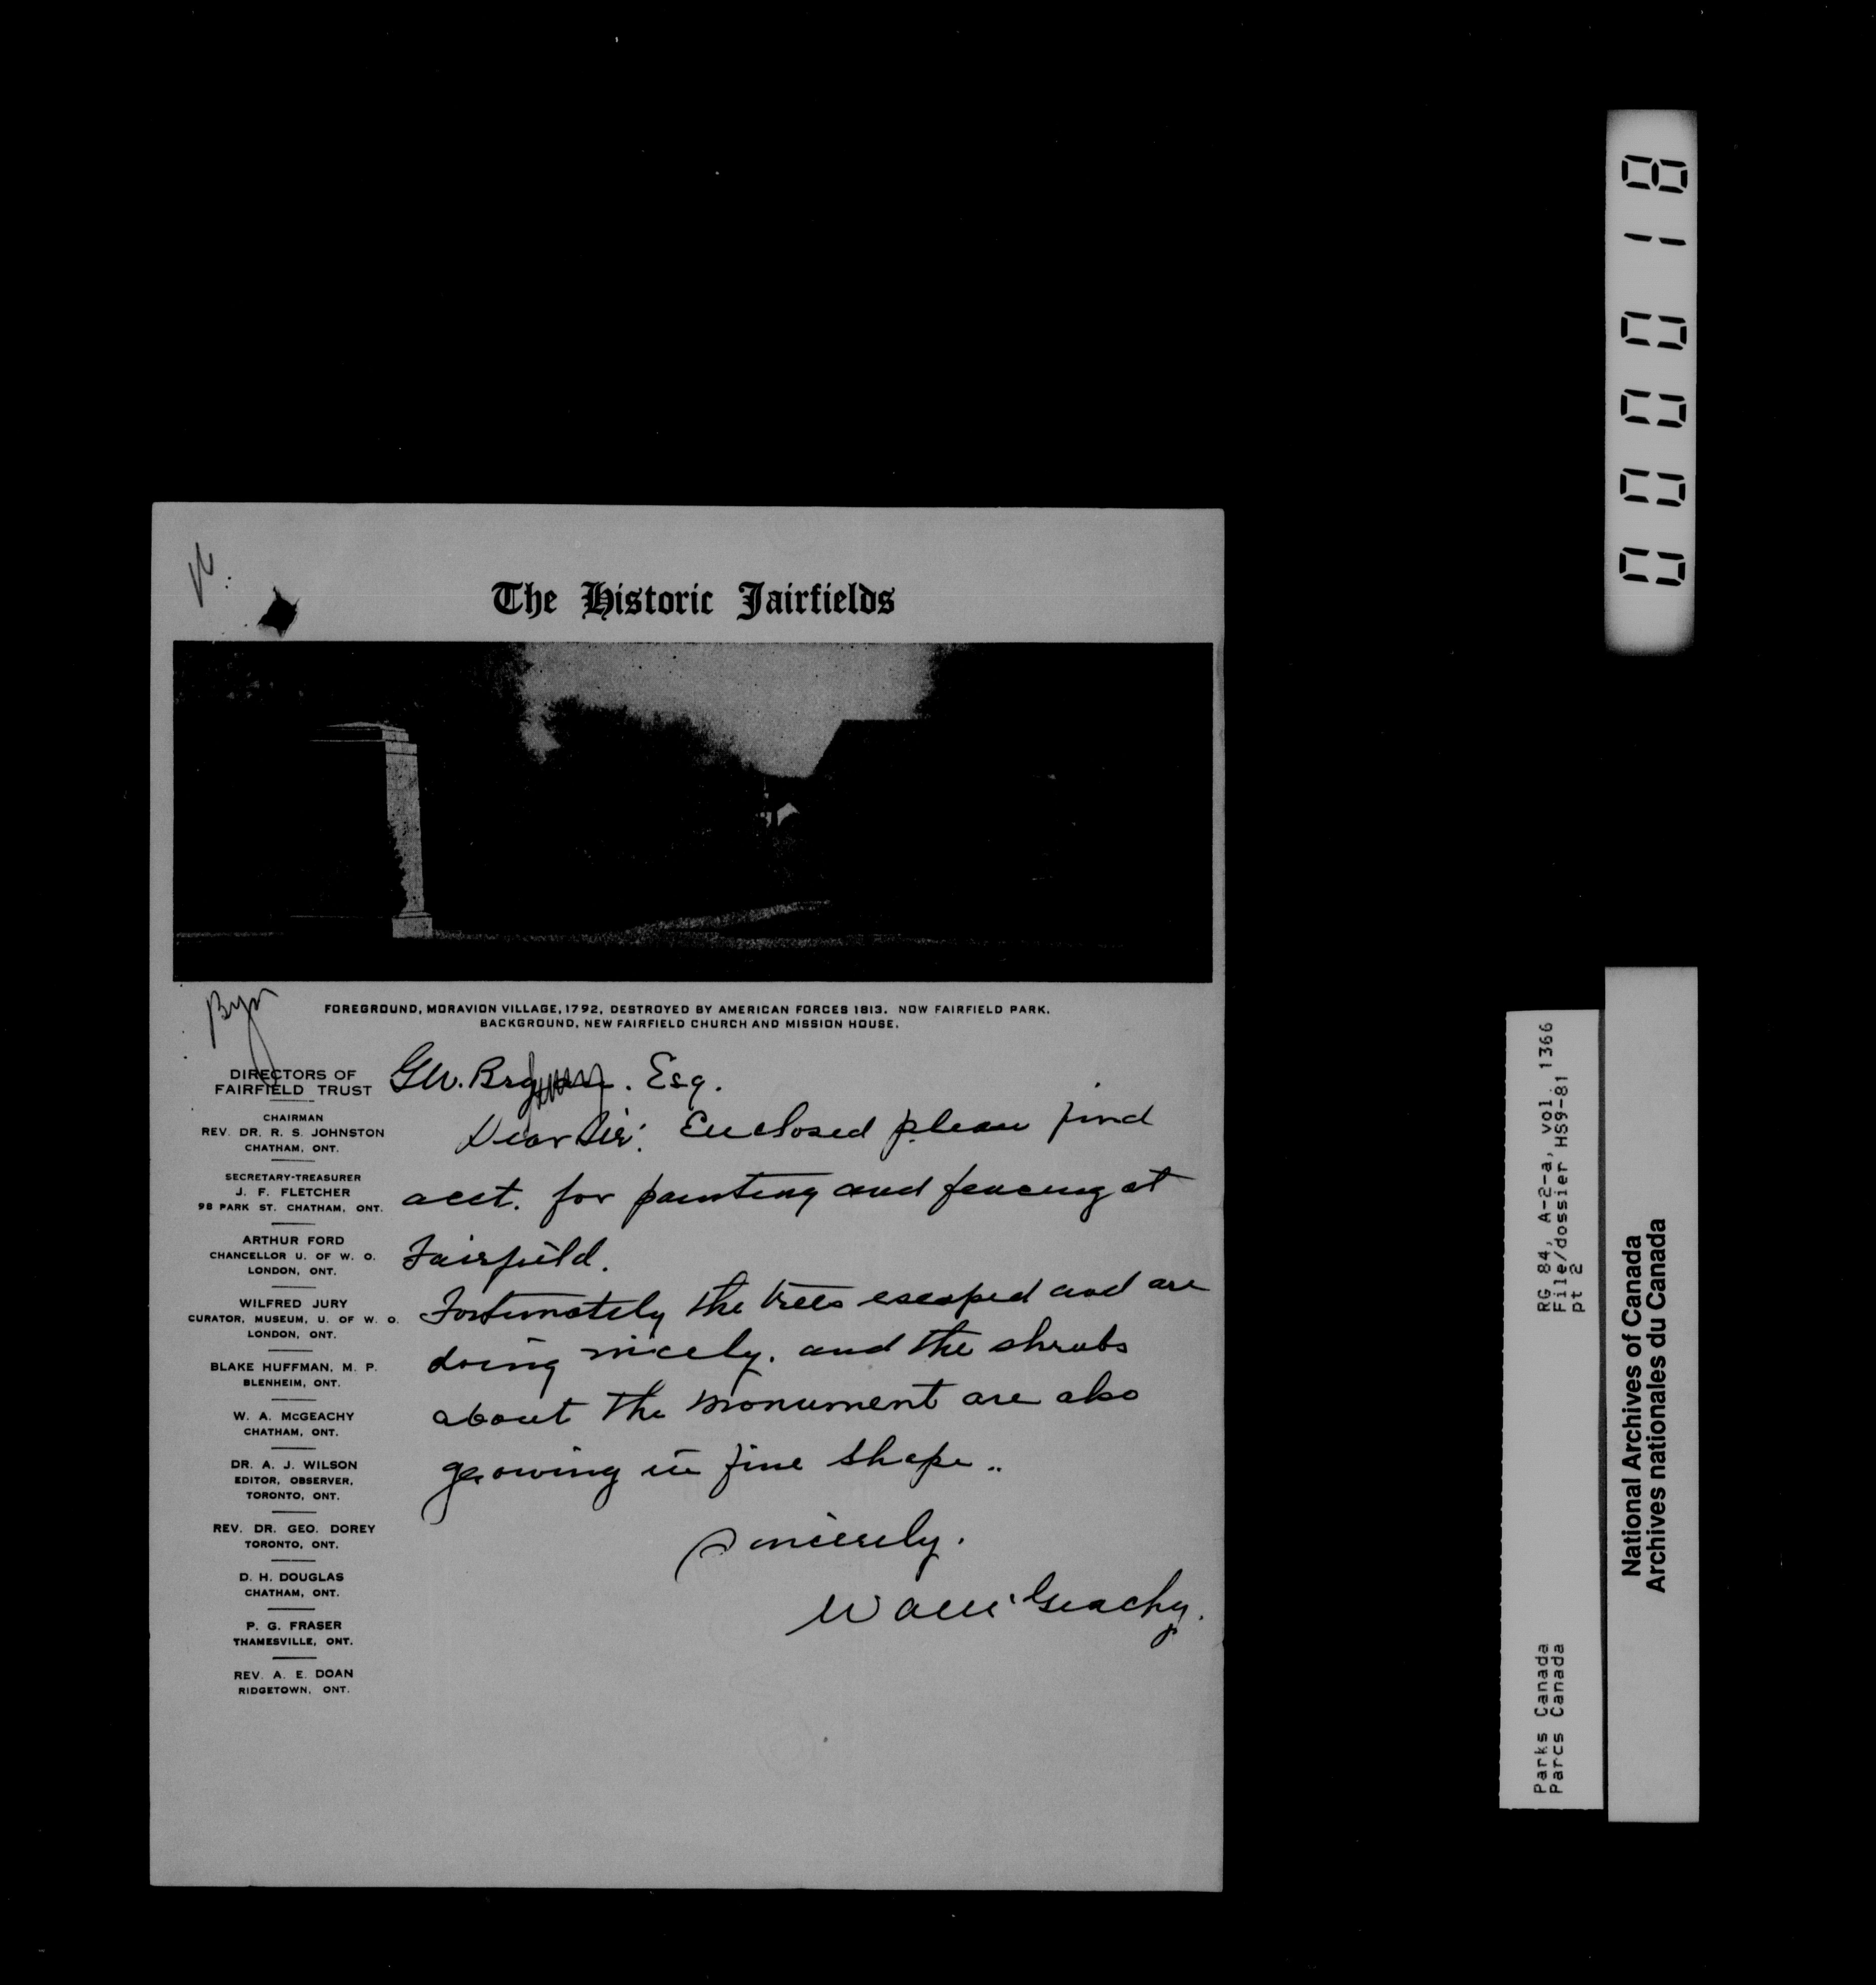 The Historic Fairfields
FOREGROUND, MORAVION VILLAGE, 1792, DESTROYED BY AMERICAN FORCES 1813. NOW FAIRFIELD PARK.
BACKGROUND, NEW FAIRFIELD CHURCH AND MISSION HOUSE.
DIRECTORS OF
FAIRFIELD TRUST
CHAIRMAN
REV. DR. R. S. JOHNSTON
CHATHAM, ONT.
SECRETARY-TREASURER
J. F. FLETCHER
98 PARK ST. CHATHAM, ONT.
ARTHUR FORD
CHANCELLOR U. OF W. O.
LONDON, ONT.
WILFRED JURY
CURATOR, MUSEUM, U. OF W. O.
LONDON, ONT.
BLAKE HUFFMAN, M. P.
BLENHEIM, ONT.
W. A. McGEACHY
CHATHAM, ONT.
DR. A. J. WILSON
EDITOR, OBSERVER,
TORONTO, ONT.
REV. DR. GEO. DOREY
TORONTO, ONT.
D. H. DOUGLAS
CHATHAM, ONT.
P. G. FRASER
THAMESVILLE, ONT.
REV. A. E. DOAN
RIDGETOWN, ONT.
G.W. Esq.
Dear Sir: Enclosed please find
acct. for painting and fencing at
Fairfield.
Fortunately the trees escaped and are
doing nicely. and the shrubs
about the monument are also
growing in fine shape..
Sincerely.
W A McGeachy.
000018
RG 84, A-2-a, vol. 1366
File/dossier HS9-81
pt 2
Parks Canada
Parcs Canada
National Archives of Canada
Archives nationales du Canada